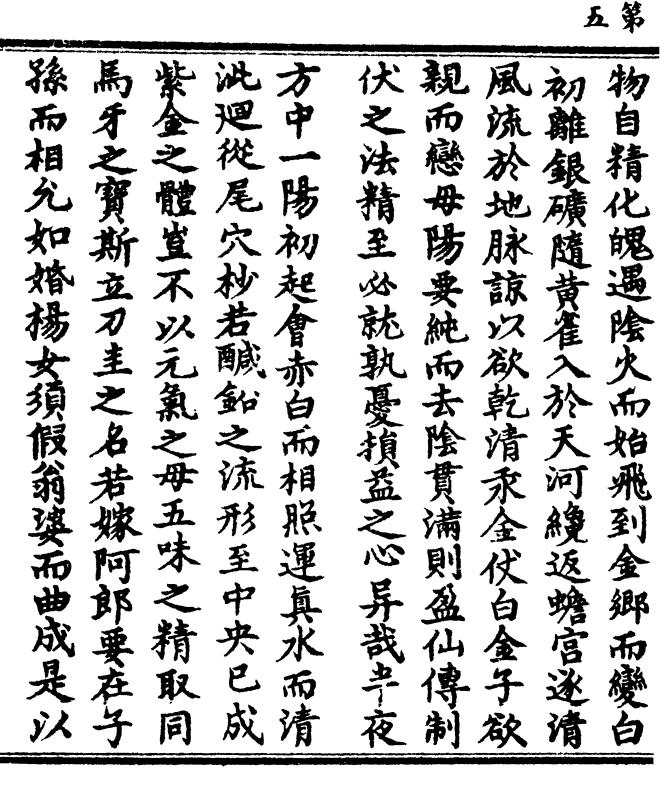 第五
物自精化魄遇陰火而始飛到金鄉而變白
初離銀礦隨黃雀入於天河纔返蟾宮逐清
風流於地脉諒以欲乾清汞金伏白金子欲
親而戀母陽要純而去陰貫滿則盈仙傳制
伏之法精至必就孰憂損益之心异哉半夜
方中一陽初起會赤白而相照運眞水而清
沘廻從尾穴杪若鹹鉛之流形至中央已成
紫金之體豈不以元氣之母五味之精取同
馬牙之寶斯立刀圭之名若嫁阿郎要在子
孫而相允如婚楊女須假翁婆而曲成是以